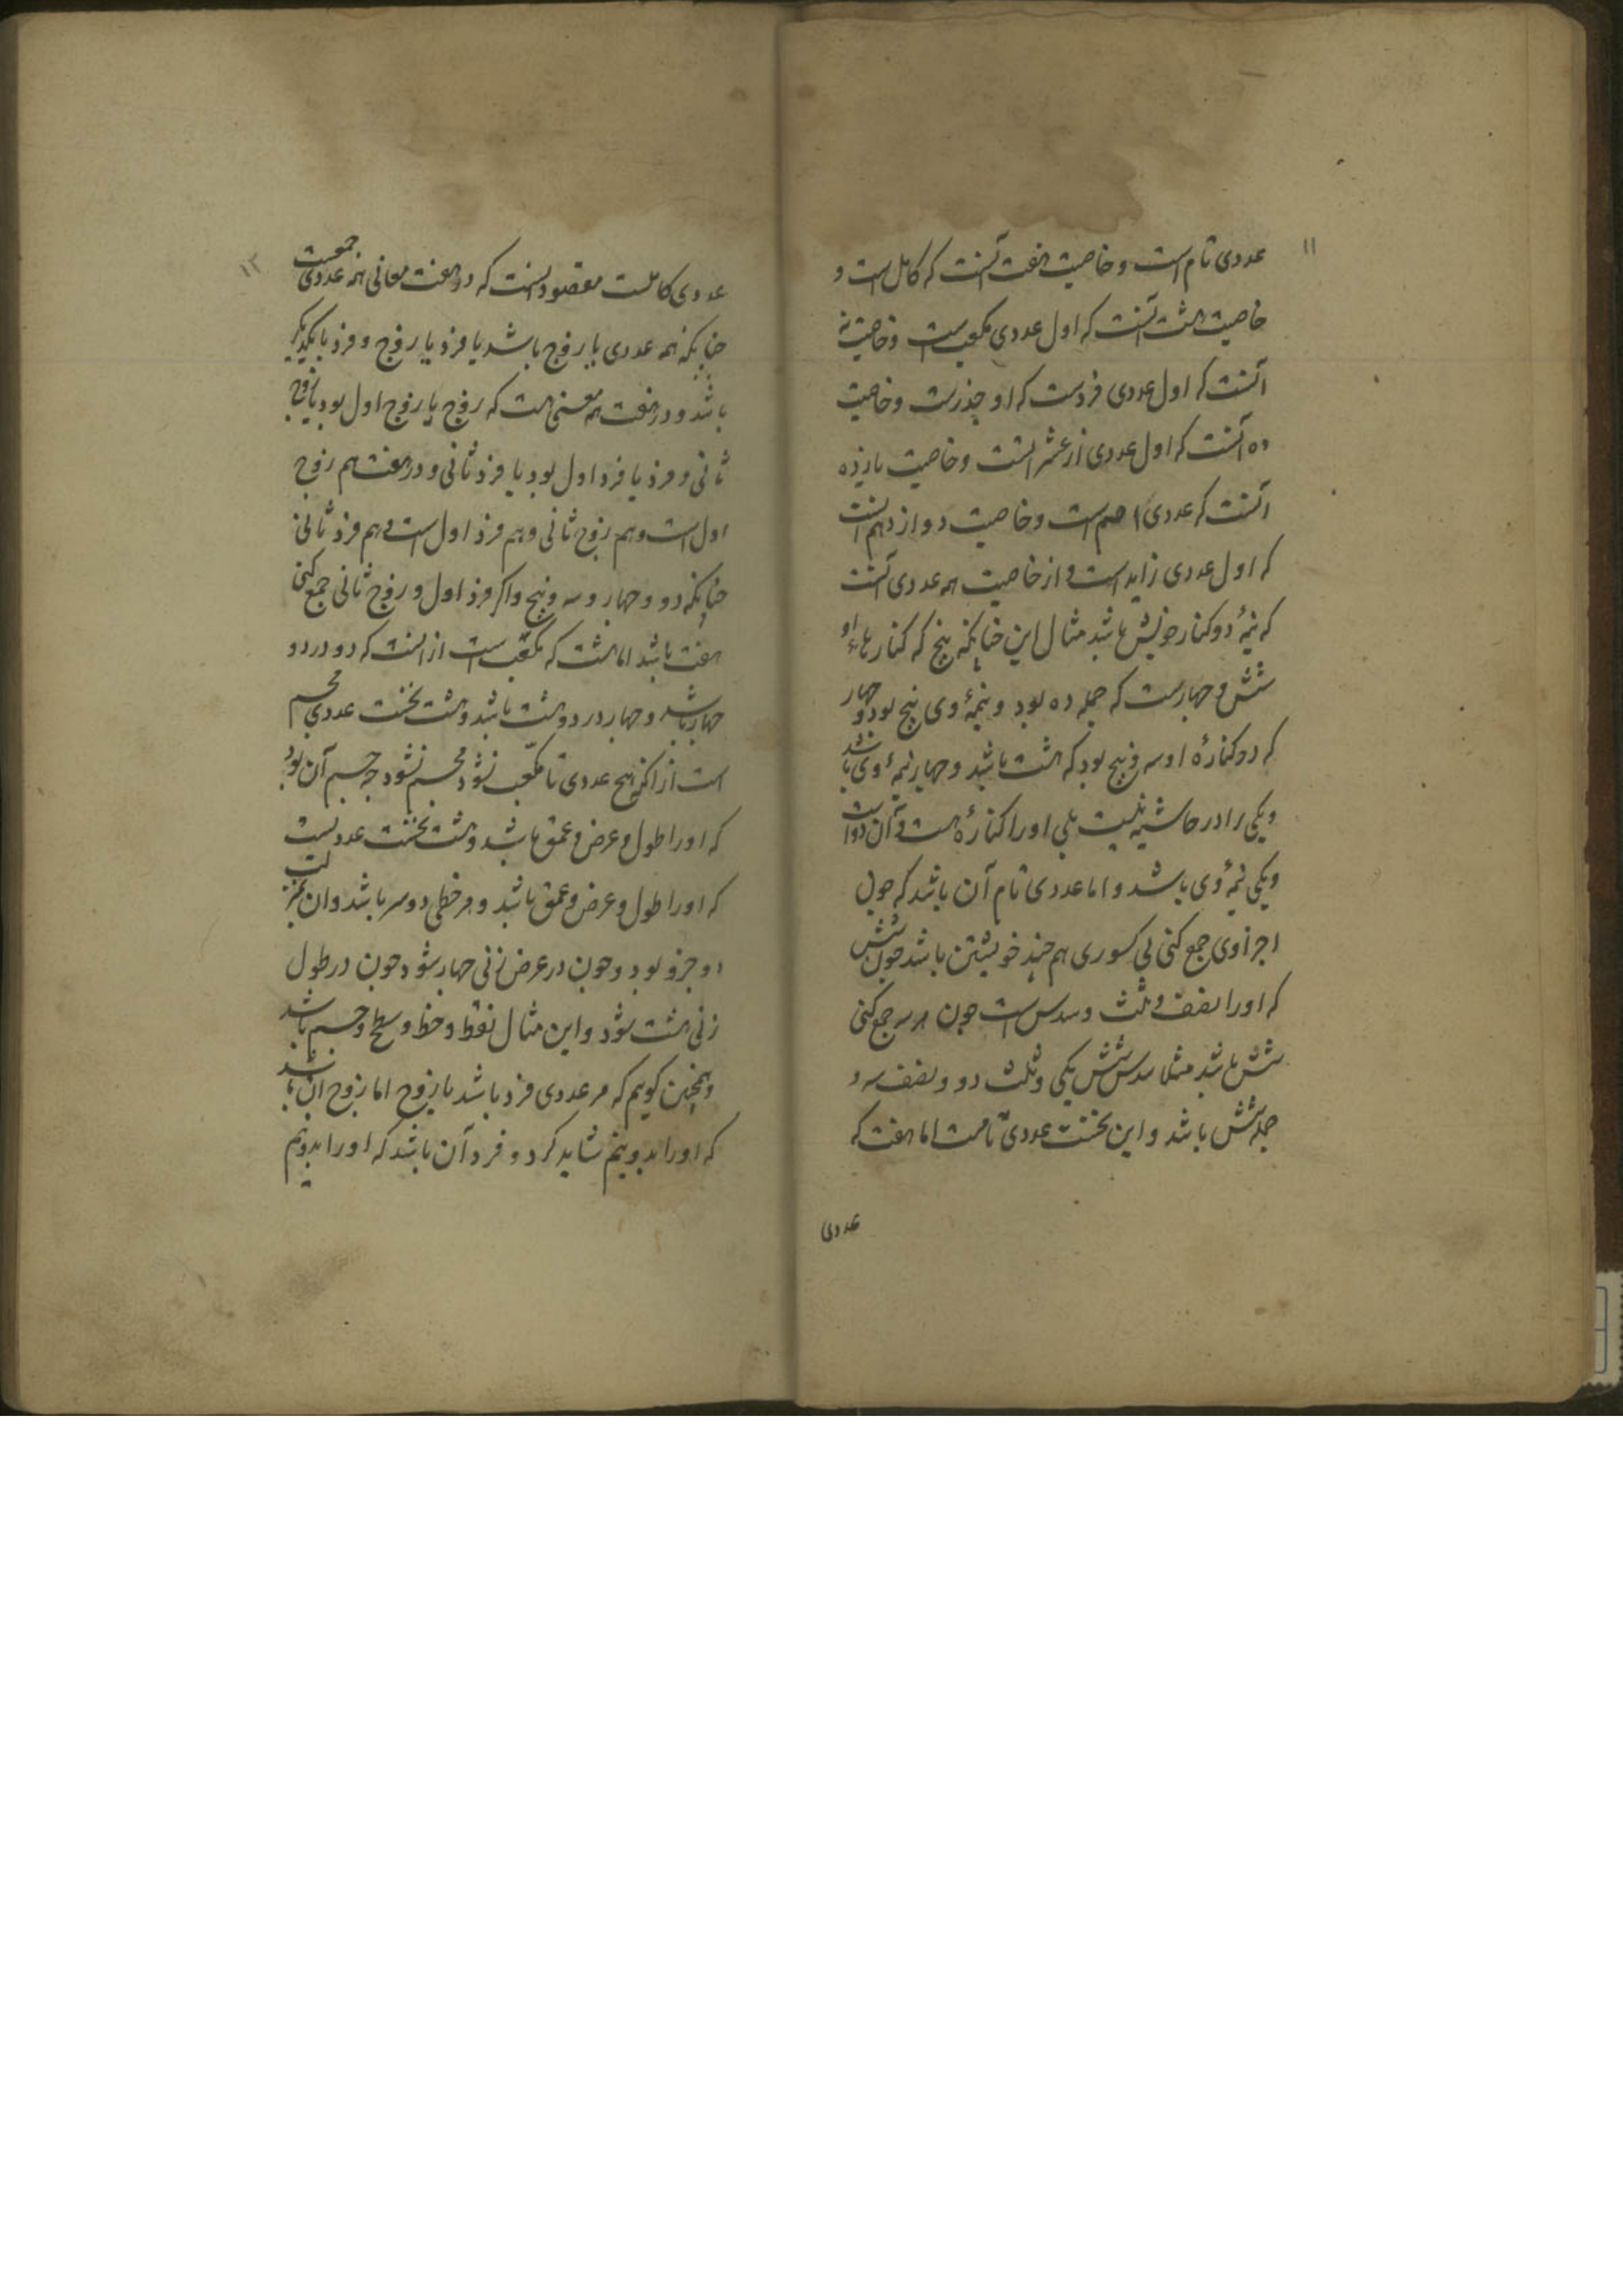 ۱۱
عددی تام است و خاصیت هفت آنست که کامل است و
خاصیت هشت آنست که اول عددی مکعب است و خاصیت نه
آنست که اول عددی فردست که او جذرست و خاصیت
ده آنست که اول عددی از عشراتست و خاصیت یازده
آنست که عددی اصم است و خاصیت دوازدهم آنست
که اول عددی زاید است و از خاصیت همه عددی آنست
که نیمهٔ دو کنار خویش باشد مثال این چنانکه پنج که کنارهاء او
شش و چهارست که جمله ده بود و نیمهٔ وی پنج بود و چهار
که دو کنارهٔ او سه و پنج بود که هشت باشد و چهار نیمهٔ وی باشد
و یکی را در حاشیه نیست بلی او را کنارهٔ هست و آن دو است
و یکی نیمهٔ وی باشد و اما عددی تام آن باشد که چون
اجزا وی جمع کنی بی کسوری هم چند خویشتن باشد چون شش
که او را نصف و ثلث و سدس است چون هر سه جمع کنی
شش باشد مثلا سدس شش یکی و ثلث دو و نصف سه و
جمله شش باشد و این نخست عددی تامست اما هفت که
عددی
۱۲
عددی کاملست مقصود آنست که در هفت معانی همه عددی جمعست
چنانکه همه عددی یا زوج باشد یا فرذ یا زوج و فرذ با یکدیگر
باشد و در هفت همه معنی هست که زوج یا زوج اول بود یا زوج
ثانی و فرذ یا فرد اول بود یا فرذ ثانی و در هفت هم زوج
اول است و هم زوج ثانی و هم فرذ اول است و هم فرذ ثانی
چنانکه دو و چهار و سه و پنج و اکر فرذ اول و زوج ثانی جمع کنی
هفت باشد اما هشت که مکعب است از آنست که دو در دو
چهار باشد و چهار در دو هشت باشد و هشت نخست عددی مجسم
است از آنکه هیچ عددی تا مکعب نشود مجسم نشود چه جسم آن بود
که او را طول و عرض و عمق باشد و هشت نخست عددیست
که او را طول و عرض و عمق باشد و هر خطی دو سر باشد و ان بمنزلت
دو جزو بود و چون در عرض زنی چهار شود چون در طول
زنی هشت شود و این مثال نقطه و خط و سطح و جسم باشد
و همچنین کویم که هر عددی فرد باشد یا زوج اما زوج ان باشد
که او را بدو نیم شاید کرد و فرد آن باشد که او را بدو نیم